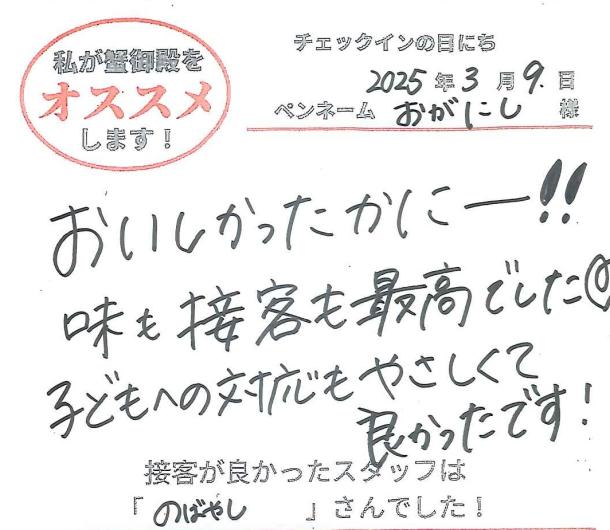 私が蟹御殿を
オススメ
します！
チェックインの日にち
2025年3月9.日
ペンネーム おがにし 様
おいしかったかにー!!
味も接客も最高でした
子どもへの対応もやさしくて
良かったです!
接客が良かったスタッフは
「のばやし」さんでした！